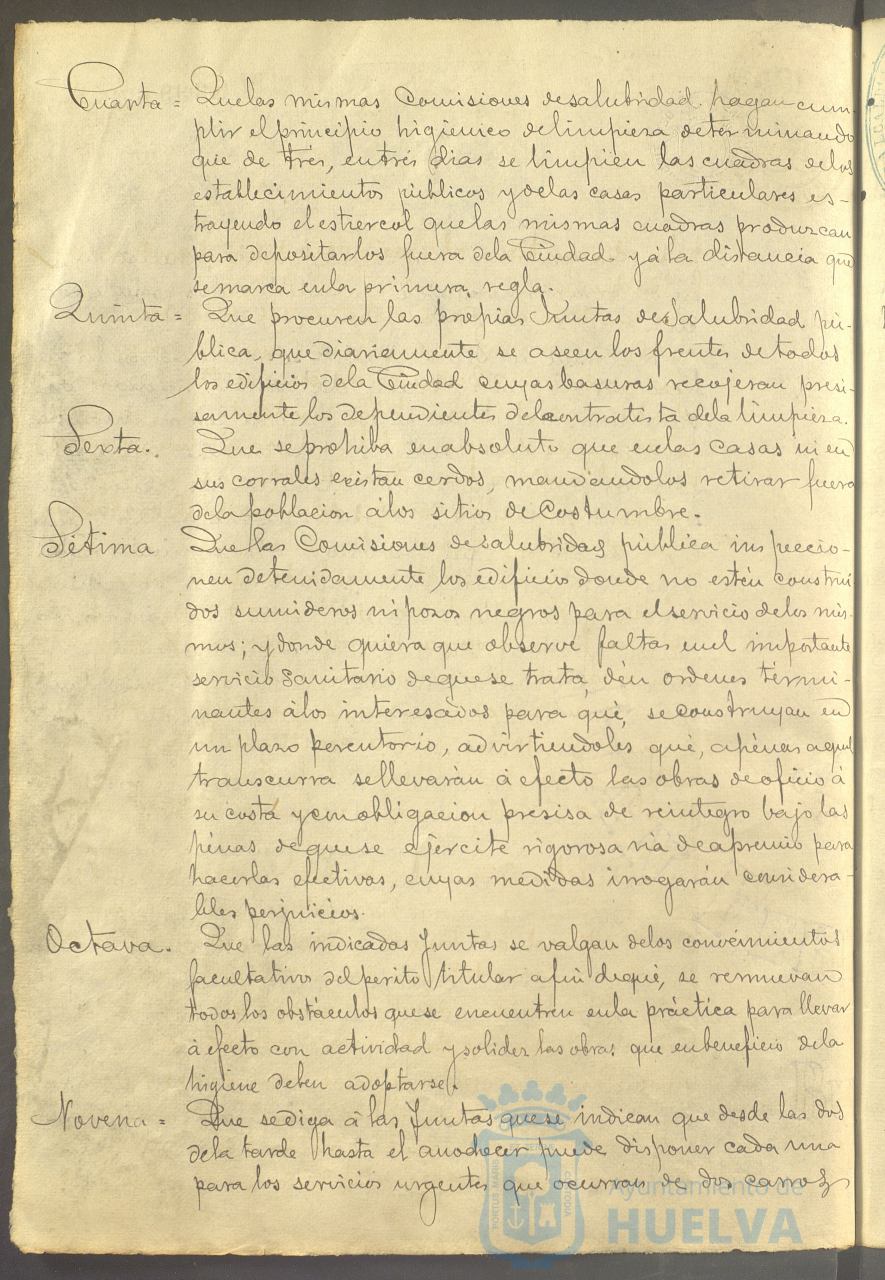 Cuarta = Que las mismas Comisiones de salubridad hagan cum
plir el principio higienico de limpieza determinando
que de trés, en trés dias se limpien las cuadras de los
establecimientos públicos y de las casas particulares es-
trayendo el estrercol que las mismas cuadras produzcan
para depositarlos fuera de la Ciudad y á la distancia que
se marca en la primera regla.
Quinta = Que procuren las própias Juntas de Salubridad pú-
blica, que diariamente se aseen los frentes de todos
los edificios de la Ciudad cuyas basuras recojeran presi-
samente los dependientes del contratista de la limpieza.
Sexta. Que se prohiba en absoluto que en las casas ni en
sus corrales existan cerdos, mandandolos retirar fuera
de la poblacion á los sitios de costumbre.
Sétima Que las Comisiones de salubridad pública inspeccio-
nen detenidamente los edificios donde no estén construi
dos sumideros ni pozos negros para el servicio de los mis-
mos; y donde quiera que observe faltas en el importante
servicio sanitario de que se trata, dén ordenes térmi-
nantes á los interesados para que, se construyan en
un plazo perentorio, advirtiendoles que, apénas aquel
transcurra se llevarán á efecto las obras de oficio á
su costa y con obligacion presisa de reintegro bajo las
pénas de que se ejercite rigorosa via de apremio para
hacerlas efectivas, cuyas medidas irrogarán considera-
bles perjuicios.
Octava. Que las indicadas Juntas se valgan de los conocimientos
facultativos del perito titular a fin de que, se remuevan
todos los obstáculos que se encuentren en la práctica para llevar
á efecto con actividad y solidez las obras que en beneficio de la
higiene deben adoptarse.
Novena = Que se diga á las Juntas que se indican que desde las dos
de la tarde hasta el anochecer puede disponer cada una
para los servicios urgentes que ocurran de dos carros
PORTUS MARIS
CUSTODIA
Ayuntamiento de
HUELVA